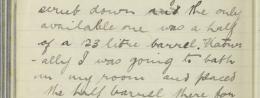 scrub down and the only
available one was a half
of a 23 litre barrel. Natur
-ally I was going to bath
in my room and placed
the half barrel there for